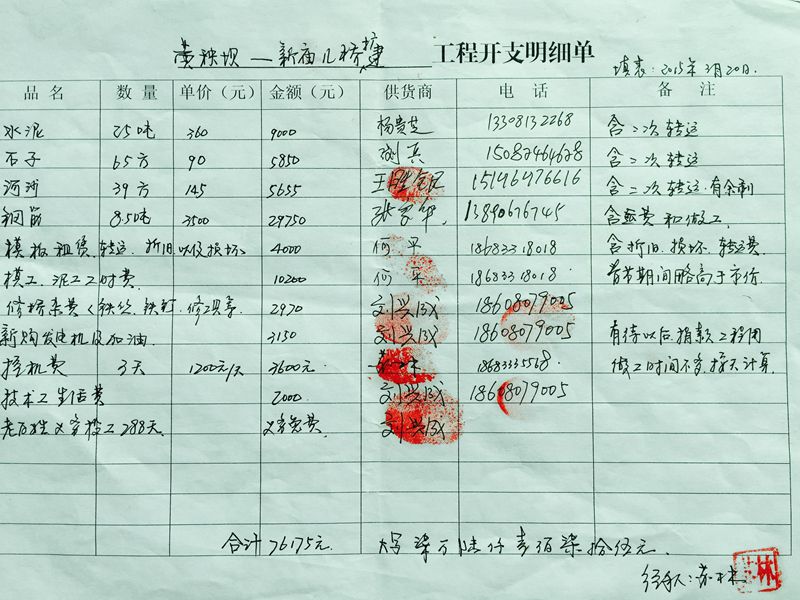 黄秧坝—新庙儿桥扩建 工程开支明细单
填表:2015年2月20日.
品名 数量 单价(元) 金额(元) 供货商 电话 备注
水泥 25吨 360 9000 杨贵芝 13308132268 含二次转运
石子 65方 90 5850 刘兵 15082464678 含二次转运
河沙 39方 145 5655 15196976616 含二次转运.有余剩
钢筋 8.50吨 3500 29750 13890676745 含运费和做工.
模板租赁.转运.折旧以及损坏 4000 何平 18683318018 含折旧.损坏.转运费
模工、泥工工时费 10200 何平 18683318018. 春节期间略高于市价.
修桥杂费(铁丝.铁钉.修坝等 2970 刘兴成 18608079005
新购发电机及加油. 3150 刘兴成 18608079005 有待以后捐款工程用
挖机费 3天 1200元/天 3600元. 18683335518. 做工时间不等.按天计算.
技术工生活费 2000 刘兴成 18608079005
老百姓义务投工288天. 义务免费. 刘兴成
合计76175元. 大写 柒万陆仟壹佰柒拾伍元.
经手人:
林